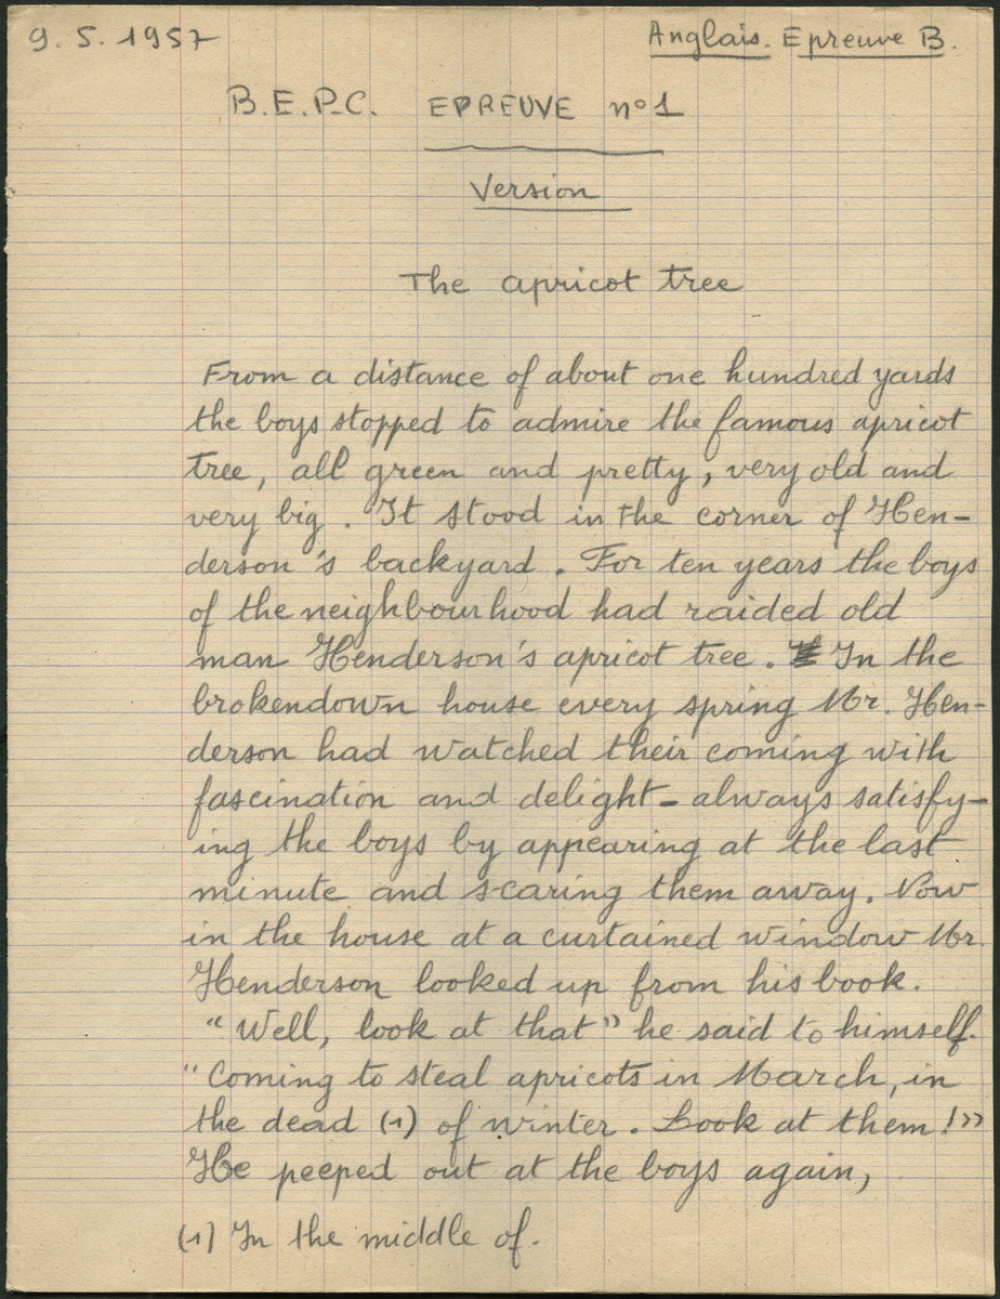 9. 5. 1957
Anglais. Epreuve B.
B.E.P.C. EPREUVE n°1
Version
The apricot tree
From a distance of about one hundred yards
the boys stopped to admire the famous apricot
tree, all green and pretty, very old and
very big. It stood in the corner of Hen-
derson's backyard. For ten years the boys
of the neighbourhood had raided old
man Henderson's apricot tree. In the
brokendown house every spring Mr. Hen-
derson had watched their coming with
fascination and delight - always satisfy-
ing the boys by appearing at the last
minute and scaring them away. Now
in the house at a curtained window Mr.
Henderson looked up from his book.
"Well, look at that" he said to himself.
"Coming to steal apricots in March, in
the dead (1) of winter. Look at them!"
He peeped out at the boys again,
(1) In the middle of.